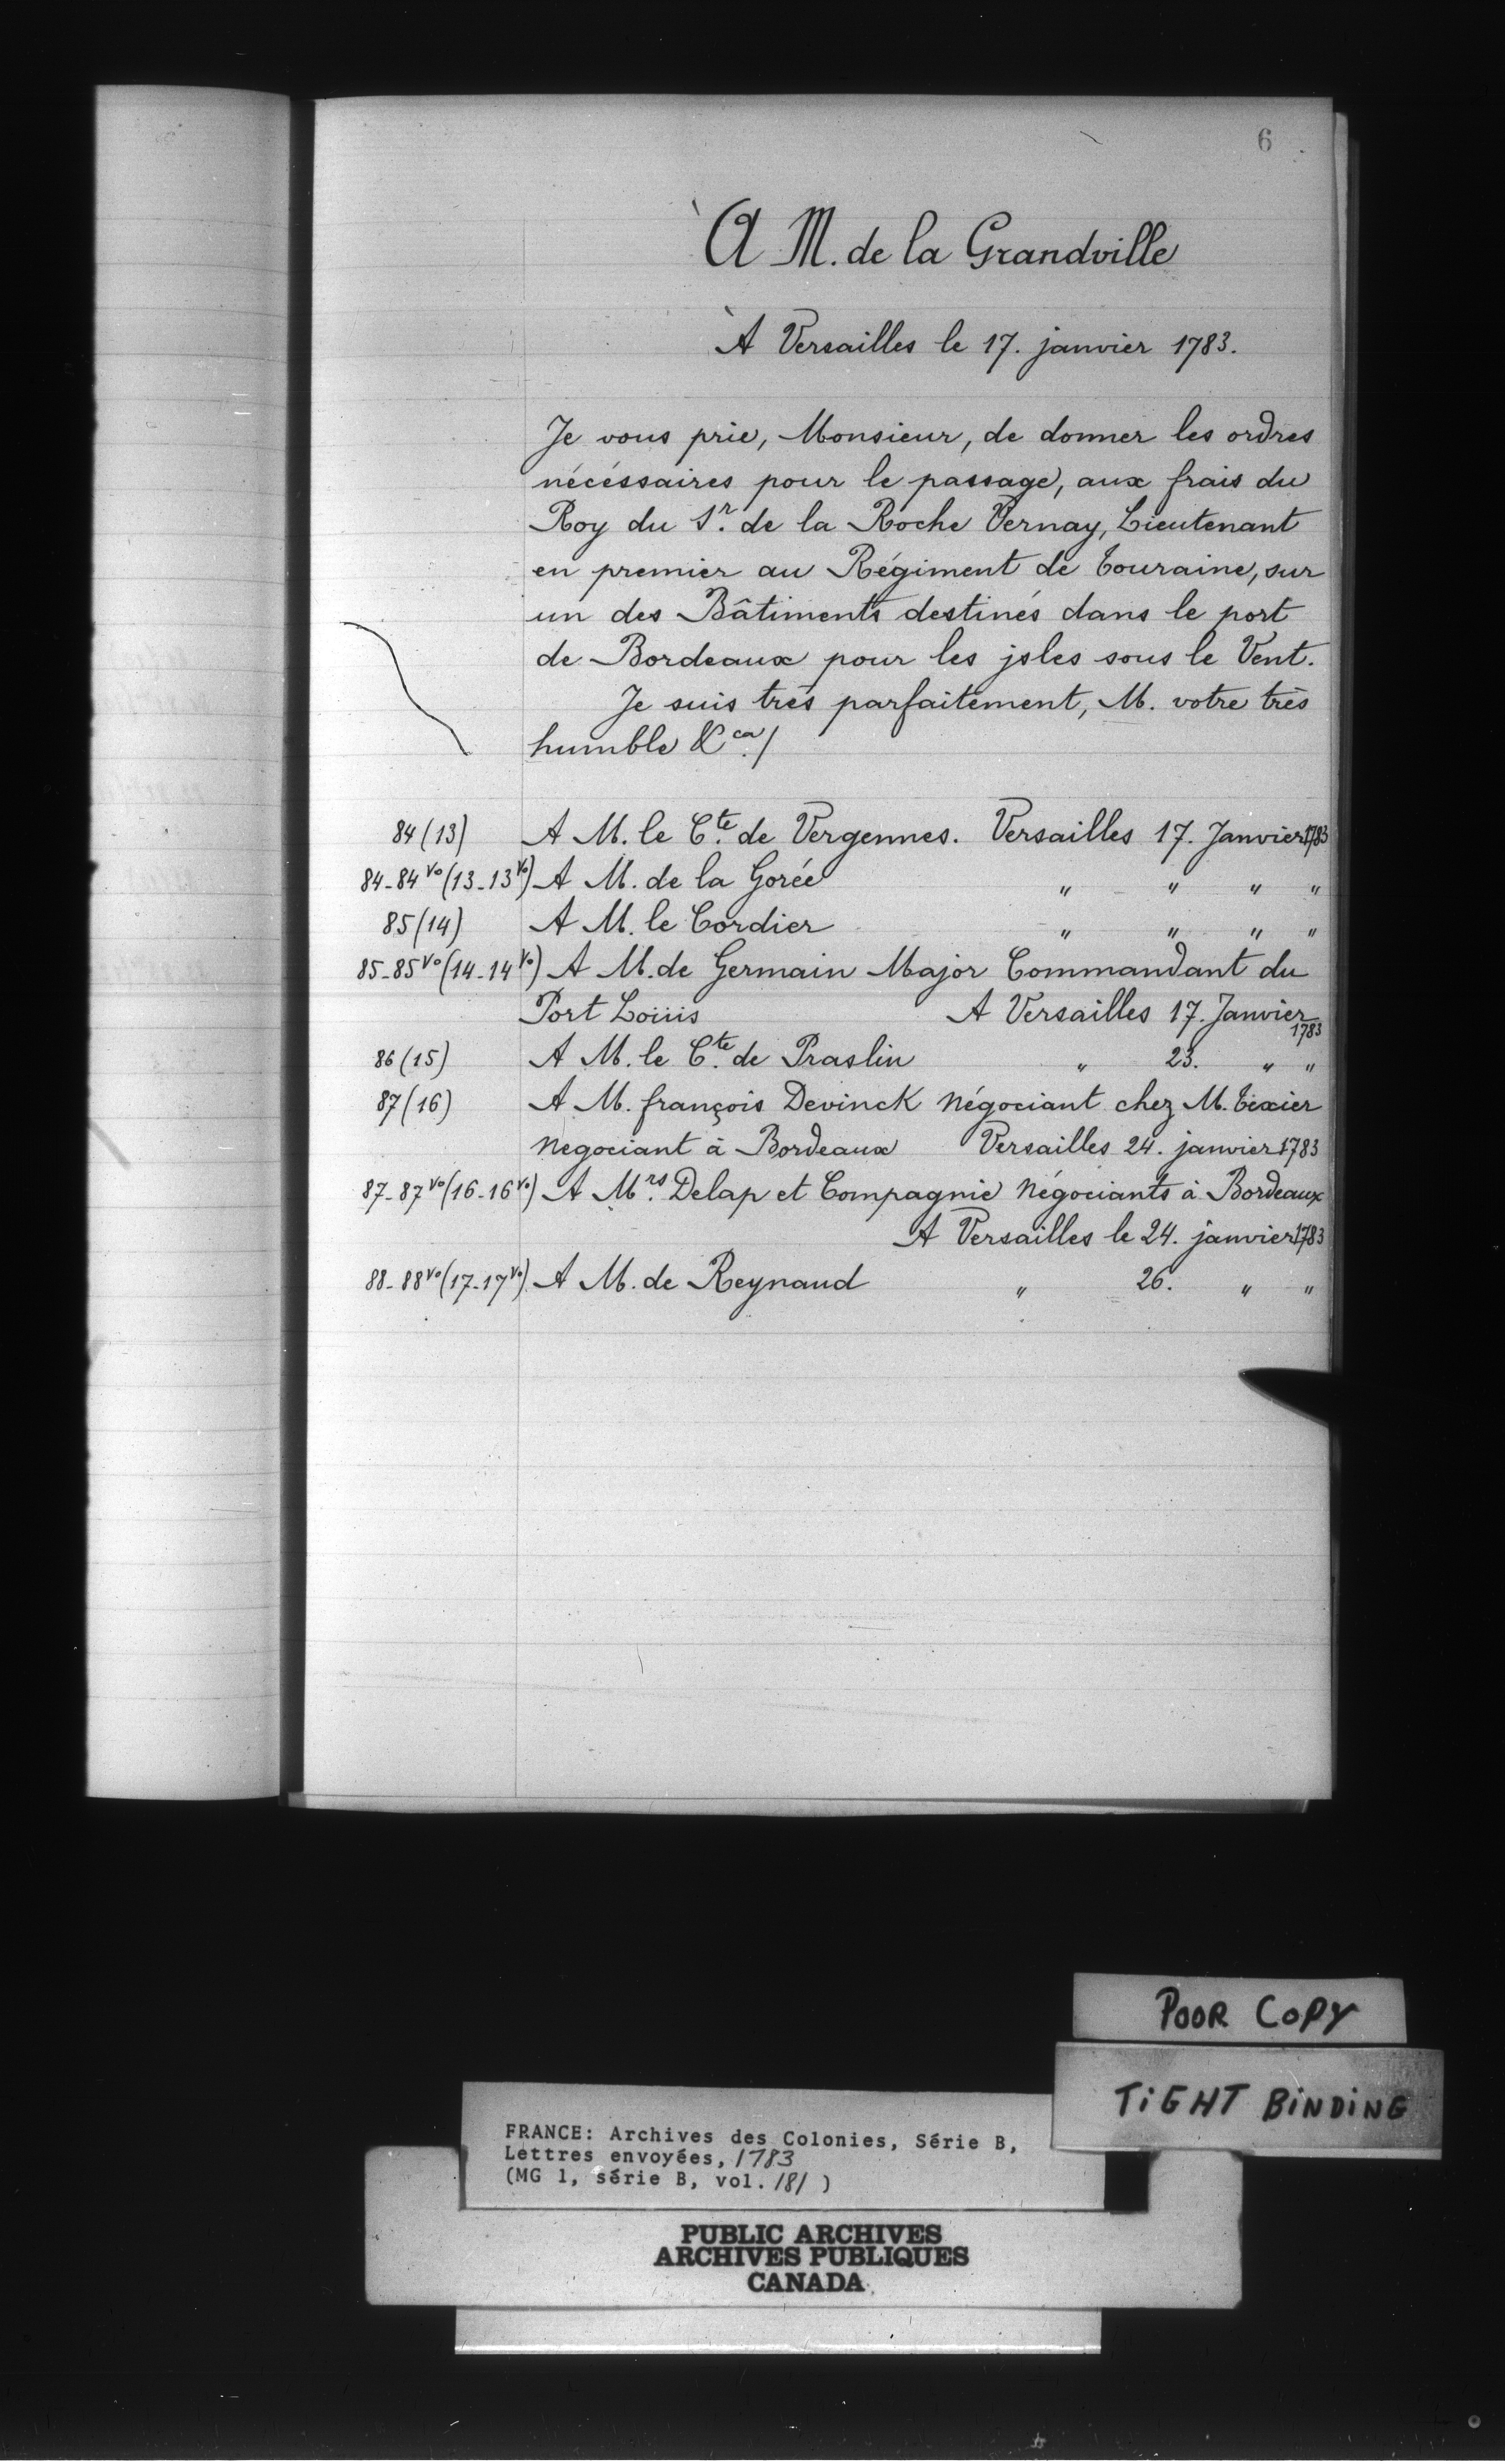 6
A M. de la Grandville
A Versailles le 17. janvier 1783.
Je vous prie, Monsieur, de donner les ordres
nécéssaires pour le passage, aux frais du
Roy du Sr. de la Roche Vernay, Lieutenant
en premier au Régiment de Touraine, sur
un des Bâtiments destinés dans le port
de Bordeaux pour les jsles sous le Vent.
Je suis très parfaitement, M. votre très
humble &ca./
84 (13) A M. le Cte. de Vergennes. Versailles 17. Janvier 1783
84-84 vo (13-13 vo) A M. de la Gorée " " " "
85 (14) A M. le Cordier " " " "
85-85 vo (14-14 vo) A M. de Germain Major Commandant du
Port Loüis A Versailles 17. Janvier 1783
86 (15) A M. le Cte. de Praslin " 23. " "
87 (16) A M. françois Devinck Négociant chez M. Texier
Negociant à Bordeaux Versailles 24. janvier 1783
87-87 vo (16-16 vo) A Mrs. Delap et Compagnie Négociants à Bordeaux
A Versailles le 24. janvier 1783
88-88 vo (17-17 vo) A M. de Reynaud " 26. " "
POOR COPY
TIGHT BINDING
FRANCE: Archives des Colonies, Série B,
Lettres envoyées, 1783
(MG 1, série B, vol. 181 )
PUBLIC ARCHIVES
ARCHIVES PUBLIQUES
CANADA